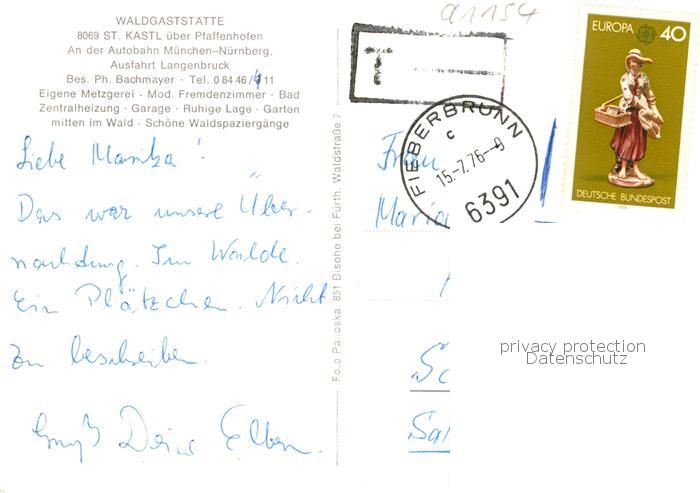 a1154
WALDGASTSTATTE
8069 ST. KASTL über Pfaffenhofen
An der Autobahn München–Nürnberg,
Ausfahrt Langenbruck
Bes. Ph. Bachmayer · Tel. 0 84 46 / 411
Eigene Metzgerei · Mod. Fremdenzimmer · Bad
Zentralheizung · Garage · Ruhige Lage · Garten
mitten im Wald · Schöne Waldspaziergänge
Liebe Marika!
Das war unsere Über-
nachtung. Im Walde.
Ein Plätzchen. Nicht
zu beschreiben.
Gruß Deine Eltern.
Foto Panoska, 851 Bislohe bei Fürth, Waldstraße 7
T
FIEBERBRUNN
c
15-7.76-9
6391
EUROPA 40
DEUTSCHE BUNDESPOST
1976
Frau
Maria
Sc
Sal
privacy protection
Datenschutz